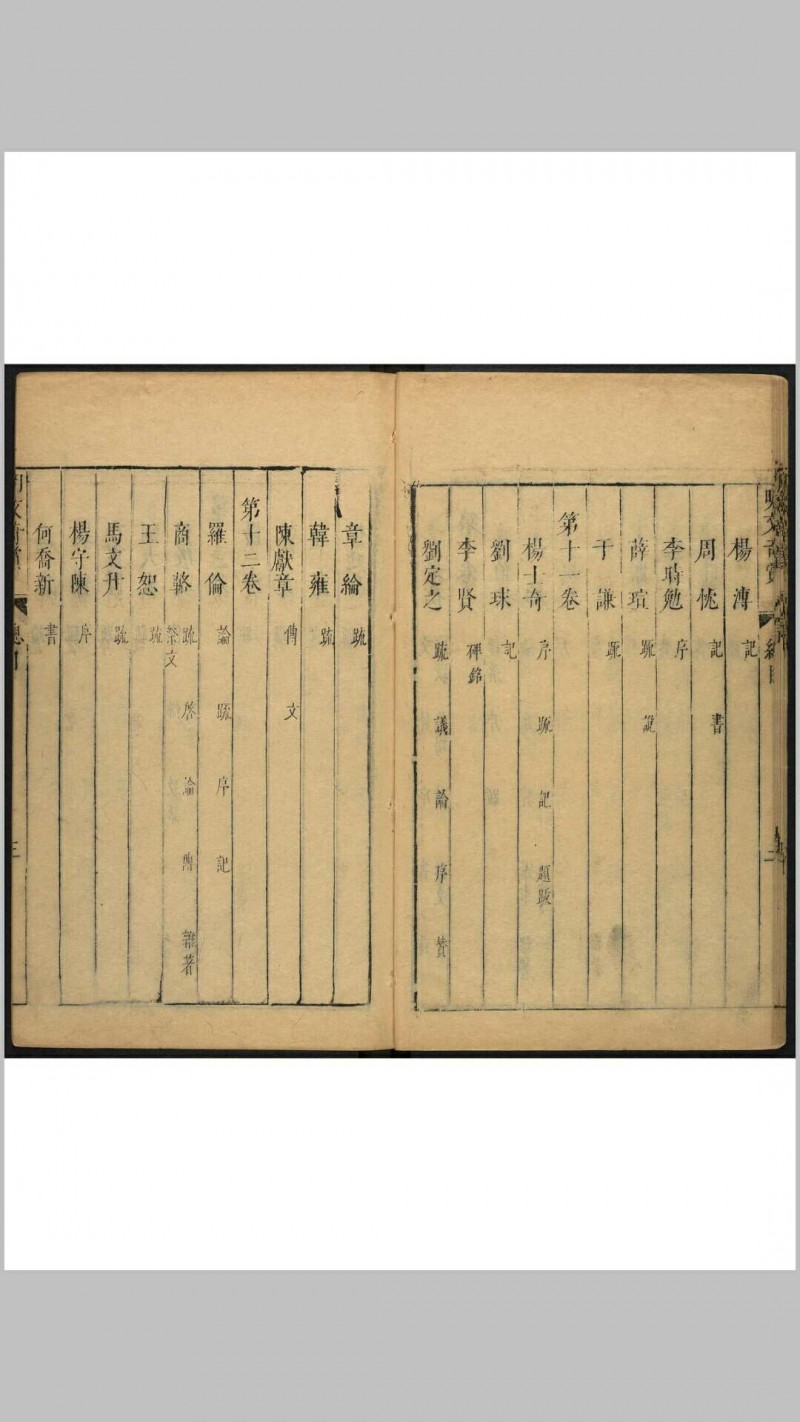 楊溥 記
周忱 記 書
李時勉 序
薛瑄 疏 說
于謙 疏
第十一卷
楊士奇 序 疏 記 題跋
劉球 記
李賢 碑銘
劉定之 疏 議 論 序 贊
章綸 疏
韓雍 疏
陳獻章 傳 文
第十二卷
羅倫 論 疏 序 記
商輅 疏 啓 論 雜著 祭文
王恕 疏
馬文升 疏
楊守陳 序
何喬新 書
三